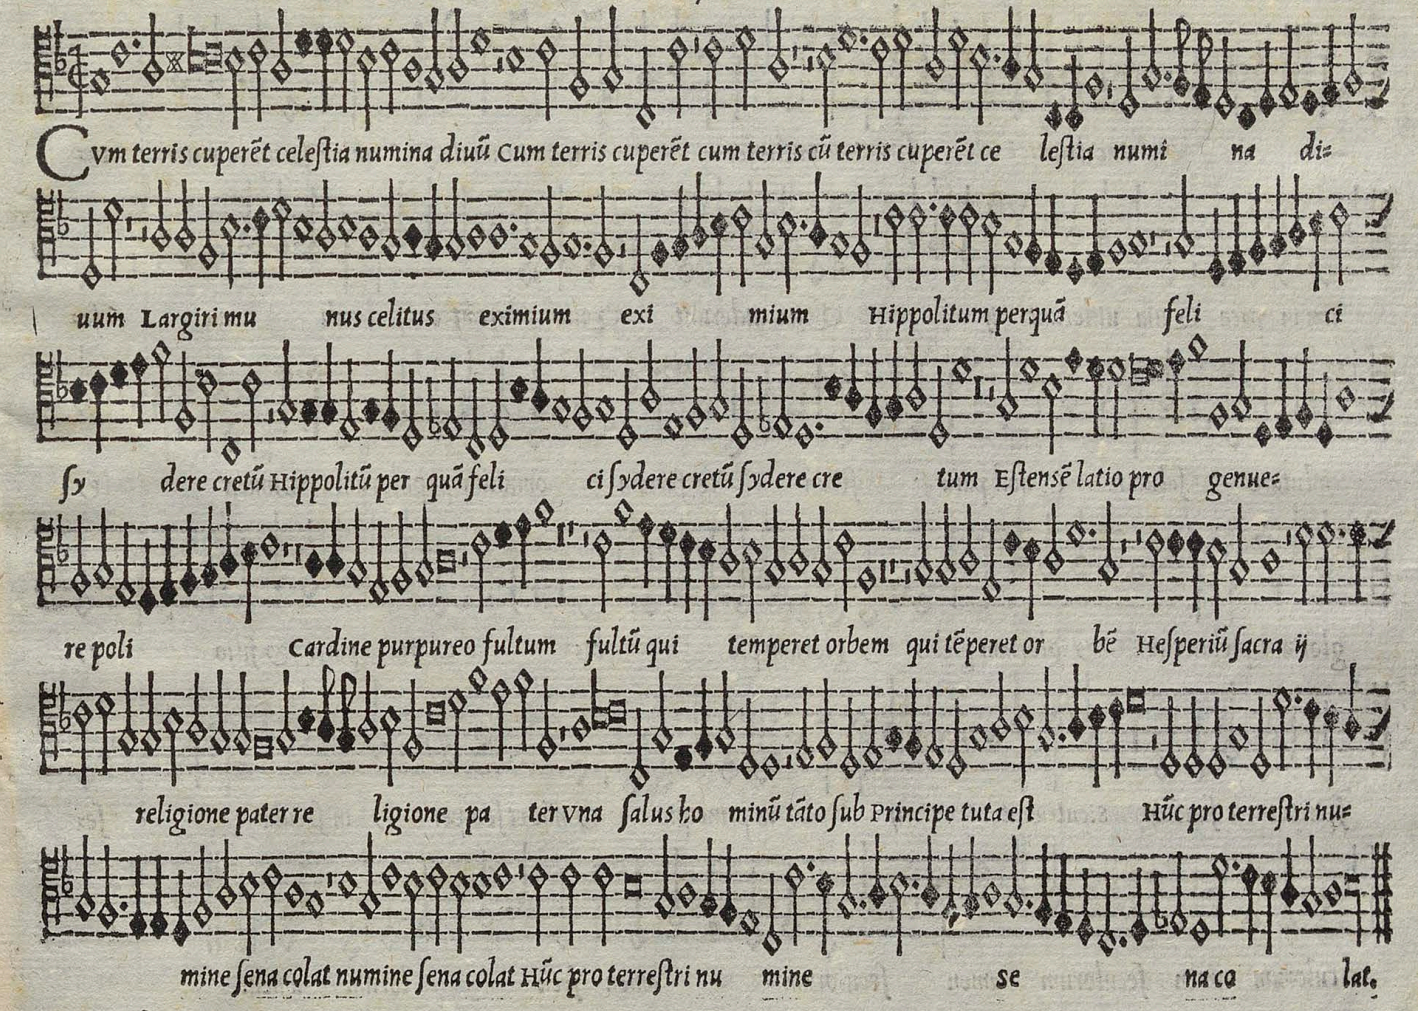 CVm terris cuperẽt celeſtia numina diuũ Cum terris cuperẽt cum terris cũ terris cuperẽt ce leſtia numi na di=
uum Largiri mu nus celitus eximium exi mium Hippolitum perquã feli ci
ſy dere cretũ Hippolitũ per quã feli ci ſydere cretũ ſydere cre tum Eſtensẽ latio pro genue=
re poli Cardine purpureo fultum fultũ qui temperet orbem qui tẽperet or bẽ Heſperiũ ſacra ij
religione pater re ligione pa ter Vna ſalus ho minũ tãto ſub Principe tuta eſt Hũc pro terreſtri nu=
mine ſena colat numine ſena colat Hũc pro terreſtri nu mine se na co lat.